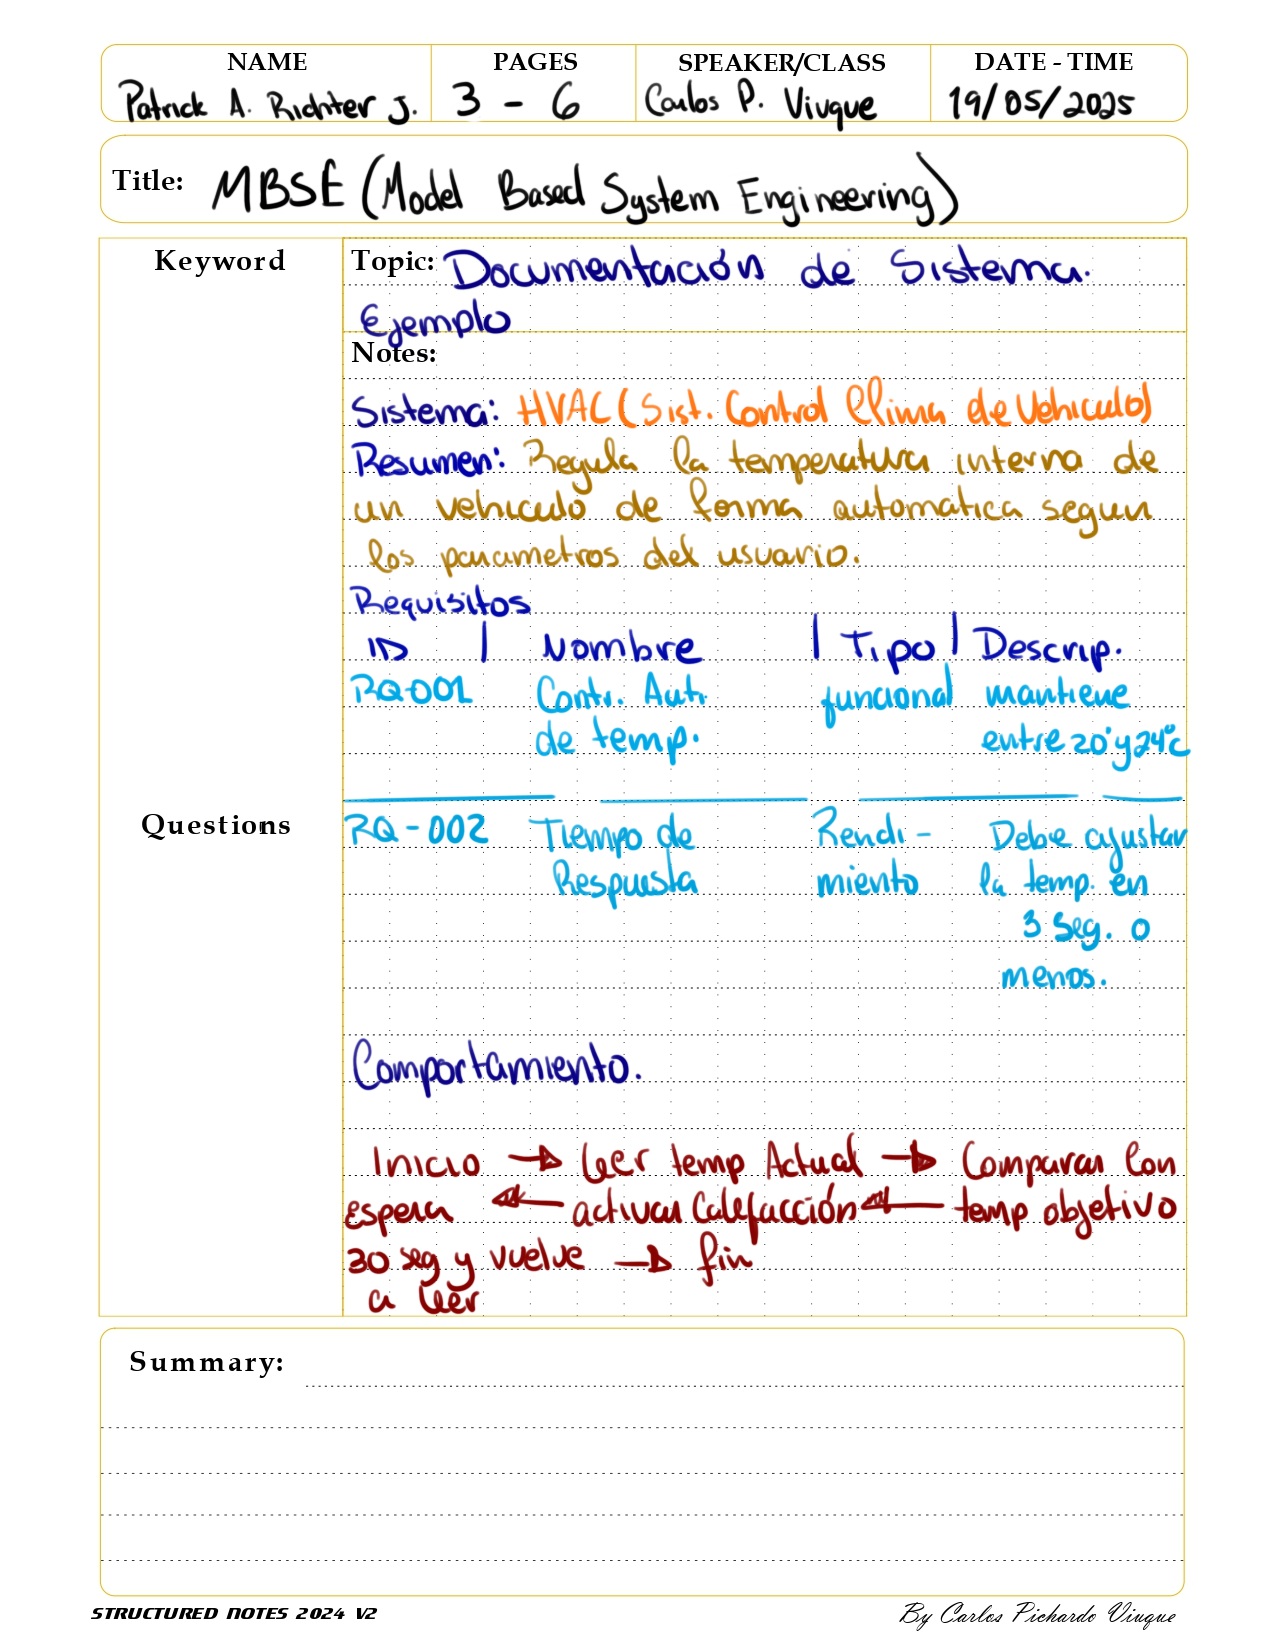 NAME PAGES SPEAKER/CLASS DATE - TIME
Patrick A. Richter J. 3 - 6 Carlos P. Viuque 19/05/2025
Title: MBSE (Model Based System Engineering)
Keyword
Topic: Documentación de Sistema.
Ejemplo
Notes:
Sistema: HVAC (Sist. Control Clima de Vehiculo)
Resumen: Regula la temperatura interna de
un vehiculo de forma automatica segun
los parametros del usuario.
Requisitos
ID | Nombre | Tipo | Descrip.
RQ-001 Contr. Aut. funcional mantiene
de temp. entre 20° y 24°C
Questions
RQ-002 Tiempo de Rendi- Debe ajustar
Respuesta miento la temp. en
3 Seg. o
menos.
Comportamiento.
Inicio → Leer temp Actual → Comparar Con
espera ← activar Calefacción ← temp objetivo
30 seg y vuelve → fin
a leer
Summary:
STRUCTURED NOTES 2024 V2 By Carlos Pichardo Viuque